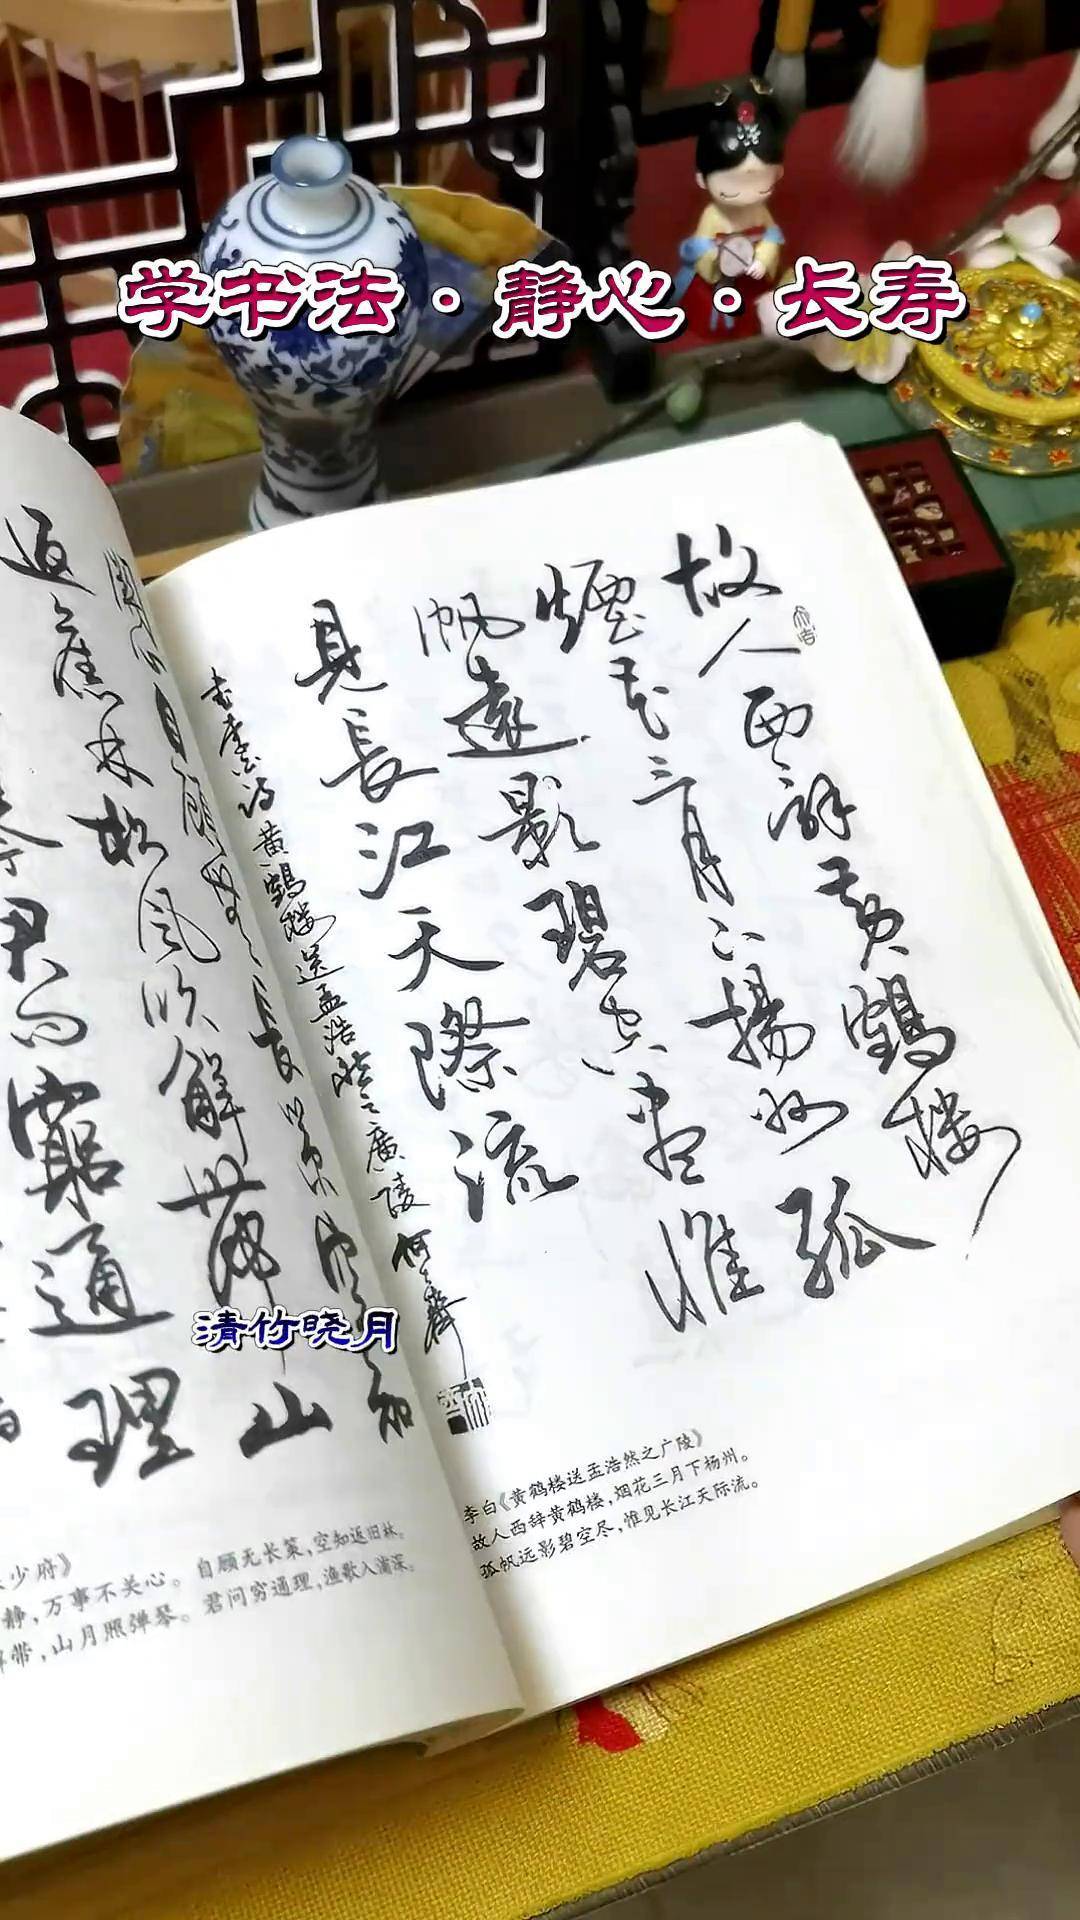 学书法·静心·长寿
故人西辞黄鹤楼
煙花三月下揚州孤
帆遠影碧空盡惟
見長江天際流
李白诗黄鹤楼送孟浩然之廣陵
清竹晓月
李白《黄鹤楼送孟浩然之广陵》
故人西辞黄鹤楼，烟花三月下杨州。
孤帆远影碧空尽，惟见长江天际流。
關心自顧無長策空知
返舊林松風吹解帶山
君问窮通理
少府》
静，万事不关心。自顾无长策，空知返旧林。
带，山月照弹琴。君问穷通理，渔歌入浦深。